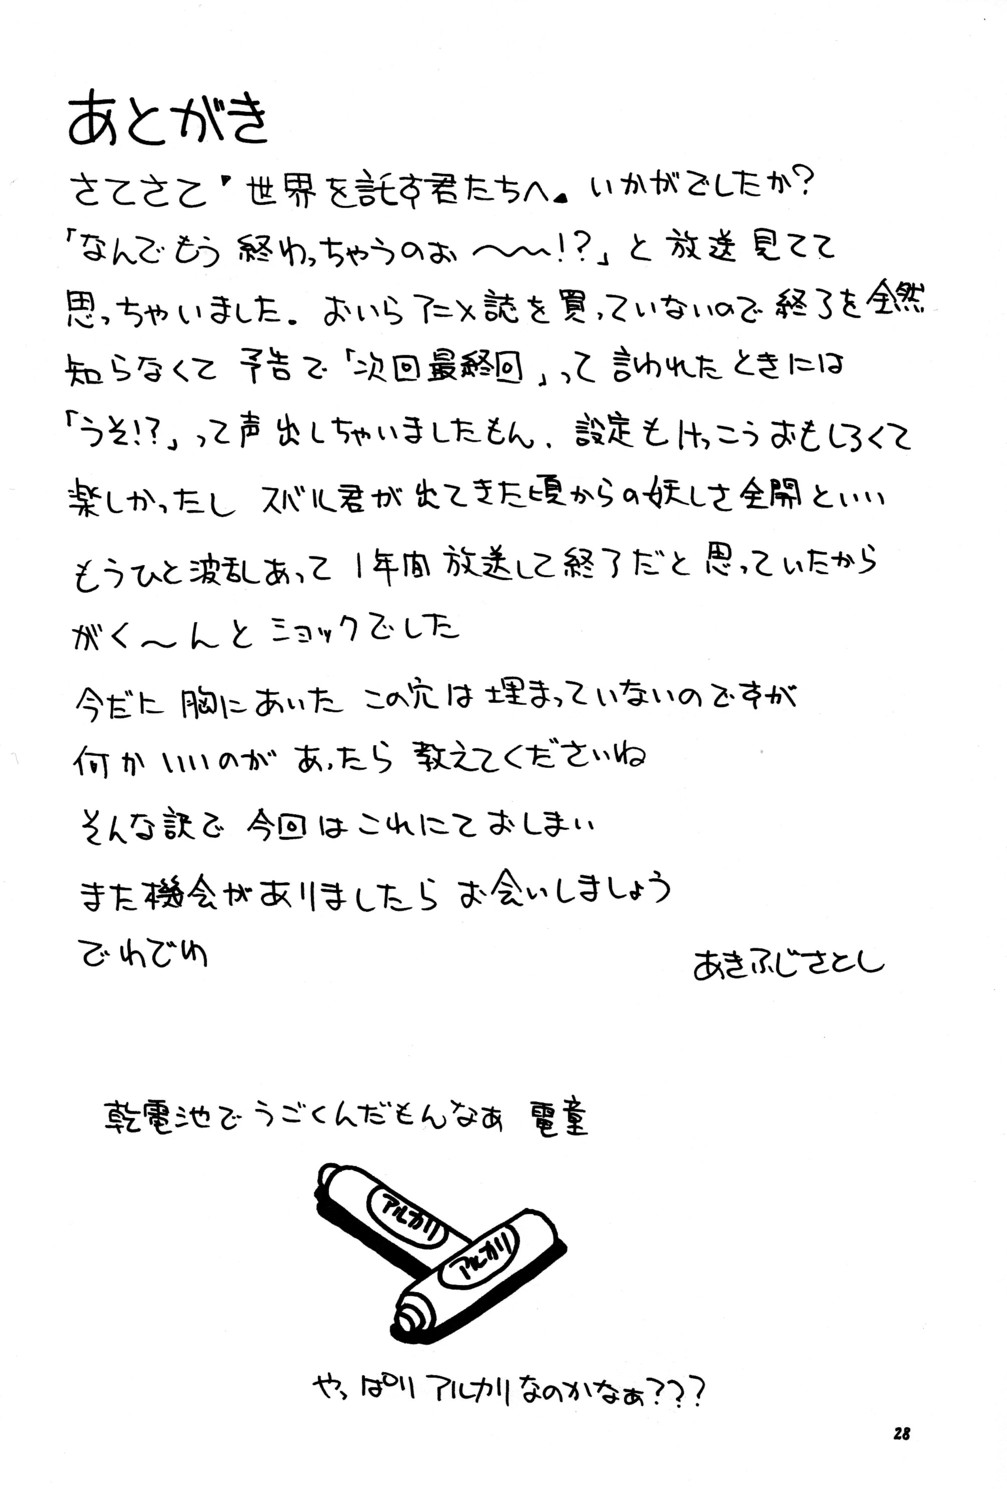 あとがき
さてさて〝世界を託す君たちへ〟いかがでしたか?
「なんでもう終わっちゃうのぉ〜〜!?」と放送見てて
思っちゃいました。おいらアニメ誌を買っていないので終了を全然
知らなくて予告で「次回最終回」って言われたときには
「うそ!?」って声出しちゃいましたもん. 設定もけっこうおもしろくて
楽しかったし スバル君が出てきた頃からの妖しさ全開といい
もうひと波乱あって 1年間放送して終了だと思っていたから
がく〜んと ショックでした
今だに胸にあいた この穴は埋まっていないのですが
何かいいのがあったら 教えてくださいね
そんな訳で 今回はこれにておしまい
また機会がありましたら お会いしましょう
でわでわ
あきふじさとし
乾電池でうごくんだもんなぁ 電童
アルカリ
アルカリ
やっぱり アルカリなのかなぁ???
28